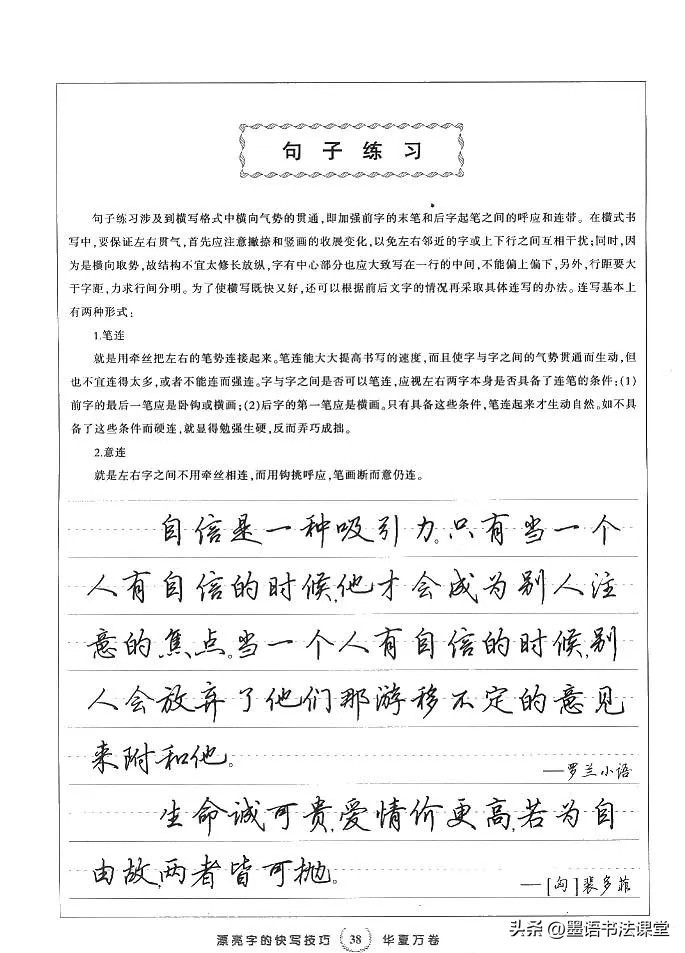 句子练习
句子练习涉及到横写格式中横向气势的贯通,即加强前字的末笔和后字起笔之间的呼应和连带。在横式书
写中,要保证左右贯气,首先应注意撇捺和竖画的收展变化,以免左右邻近的字或上下行之间互相干扰;同时,因
为是横向取势,故结构不宜太修长放纵,字有中心部分也应大致写在一行的中间,不能偏上偏下,另外,行距要大
于字距,力求行间分明。为了使横写既快又好,还可以根据前后文字的情况再采取具体连写的办法。连写基本上
有两种形式:
1.笔连
就是用牵丝把左右的笔势连接起来。笔连能大大提高书写的速度,而且使字与字之间的气势贯通而生动,但
也不宜连得太多,或者不能连而强连。字与字之间是否可以笔连,应视左右两字本身是否具备了连笔的条件:(1)
前字的最后一笔应是卧钩或横画;(2)后字的第一笔应是横画。只有具备这些条件,笔连起来才生动自然。如不具
备了这些条件而硬连,就显得勉强生硬,反而弄巧成拙。
2.意连
就是左右字之间不用牵丝相连,而用钩挑呼应,笔画断而意仍连。
自信是一种吸引力。只有当一个
人有自信的时候,他才会成为别人注
意的焦点。当一个人有自信的时候,别
人会放弃了他们那游移不定的意见
来附和他。
—罗兰小语
生命诚可贵,爱情价更高,若为自
由故,两者皆可抛。
—[匈]裴多菲
漂亮字的快写技巧 38 华夏万卷
头条@墨语书法课堂